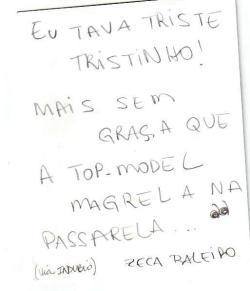 EU TAVA TRISTE
TRISTINHO!
MAIS SEM
GRAÇA QUE
A TOP-MODEL
MAGRELA NA
PASSARELA...
(VIA JADUBIO) ZECA BALEIRO